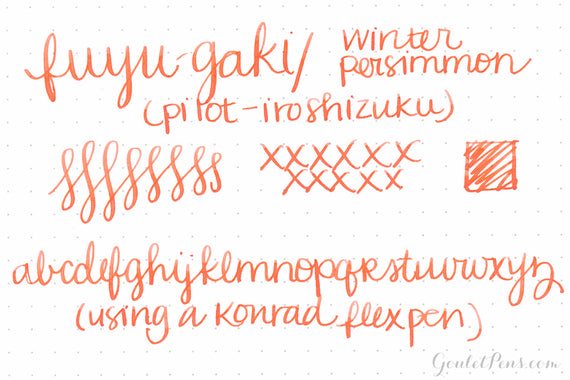 fuyu-gaki/ winter
persimmon
(pilot-iroshizuku)
xxxxxx
xxxxx
abcdefghijklmnopqrstuvwxyz
(using a Konrad flex pen)
GouletPens.com